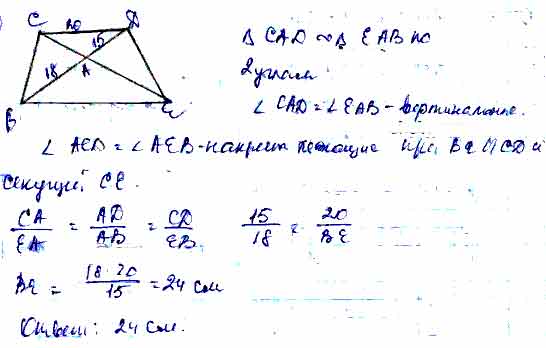 C 20 D
15
18
A
B E
Δ CAD ∾ Δ EAB по
2 углам
∠ CAD = ∠ EAB - вертикальные.
∠ ACD = ∠ AEB - накрест лежащие при BE || CD и
секущей CE.
CA/EA = AD/AB = CD/EB 15/18 = 20/BE
BE = 18·20/15 = 24 см
Ответ: 24 см.